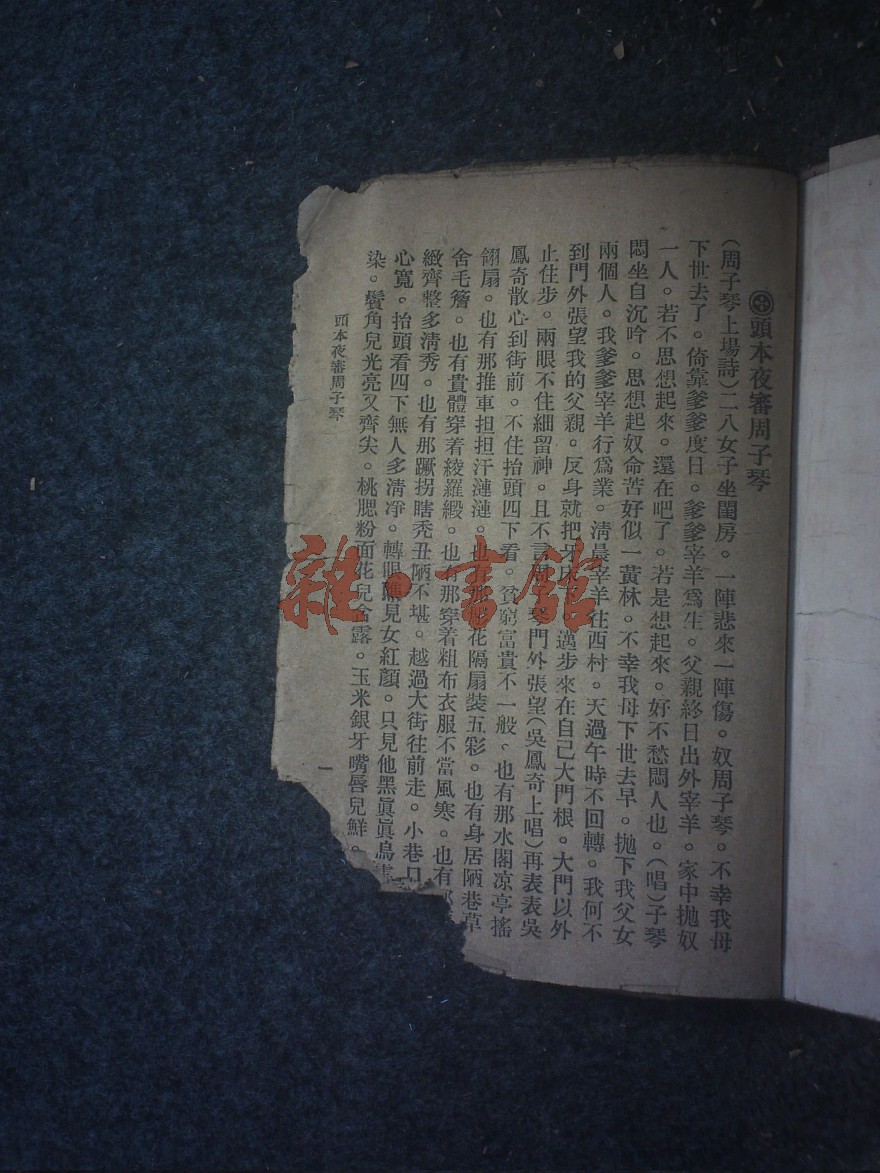 頭本夜審周子琴
(周子琴上場詩)二八女子坐閨房。一陣悲來一陣傷。奴周子琴。不幸我母
下世去了。倚靠爹爹度日。爹爹宰羊爲生。父親終日出外宰羊。家中拋奴
一人。若不思想起來。還在吧了。若是想起來。好不愁悶人也。(唱)子琴
悶坐自沉吟。思想起奴命苦好似一黃林。不幸我母下世去早。拋下我父女
兩個人。我爹爹宰羊行爲業。清晨宰羊往西村。天過午時不回轉。我何不
到門外張望我的父親。反身就把牙床。邁步來在自己大門根。大門以外
止住步。兩眼不住細留神。且不言周子琴門外張望(吳鳳奇上唱)再表表吳
鳳奇散心到街前。不住抬頭四下看。貧窮富貴不一般、也有那水閣凉亭搖
翎扇。也有那推車担担汗漣漣。也有那花隔扇裝五彩。也有身居陋巷草
舍毛簷。也有貴體穿着綾羅緞。也有那穿着粗布衣服不當風寒。也有
緻齊整多淸秀。也有那蹶拐瞎禿丑陋不堪。越過大街往前走。小巷口
心寬。抬頭看四下無人多淸凈。轉眼瞧見女紅顏。只見他黑眞眞鳥
染。鬢角兒光亮又齊尖。桃腮粉面花兒含露。玉米銀牙嘴唇兒鮮。
頭本夜審周子琴
一
雜·書館